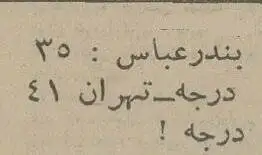 بندرعباس : ٣٥
درجه_تهران ٤١
درجه !